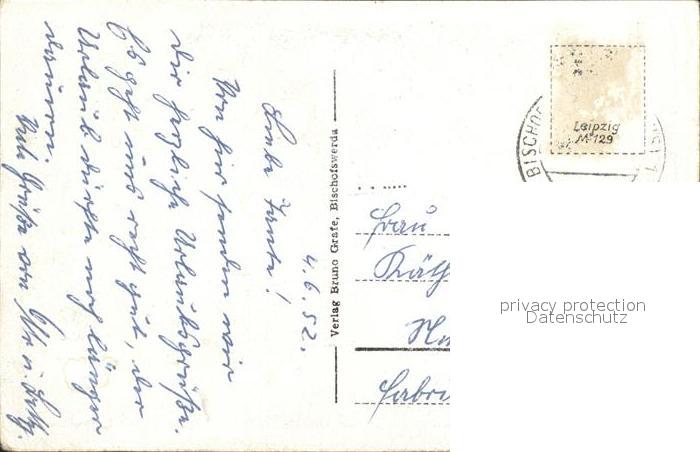 4.6.52.
Liebe Tante!
Von hier senden wir
Dir herzliche Urlaubsgrüße.
Es geht uns recht gut, der
Urlaub dürfte noch länger
dauern.
Viele Grüße von
Verlag Bruno Grafe, Bischofswerda
Leipzig
M-129
BISCHOF
Frau
Käth
Fabri
privacy protection
Datenschutz